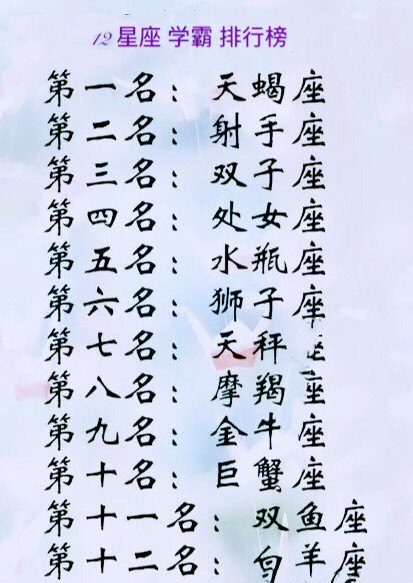 12星座 学霸 排行榜
第一名：天蝎座
第二名：射手座
第三名：双子座
第四名：处女座
第五名：水瓶座
第六名：狮子座
第七名：天秤座
第八名：摩羯座
第九名：金牛座
第十名：巨蟹座
第十一名：双鱼座
第十二名：白羊座